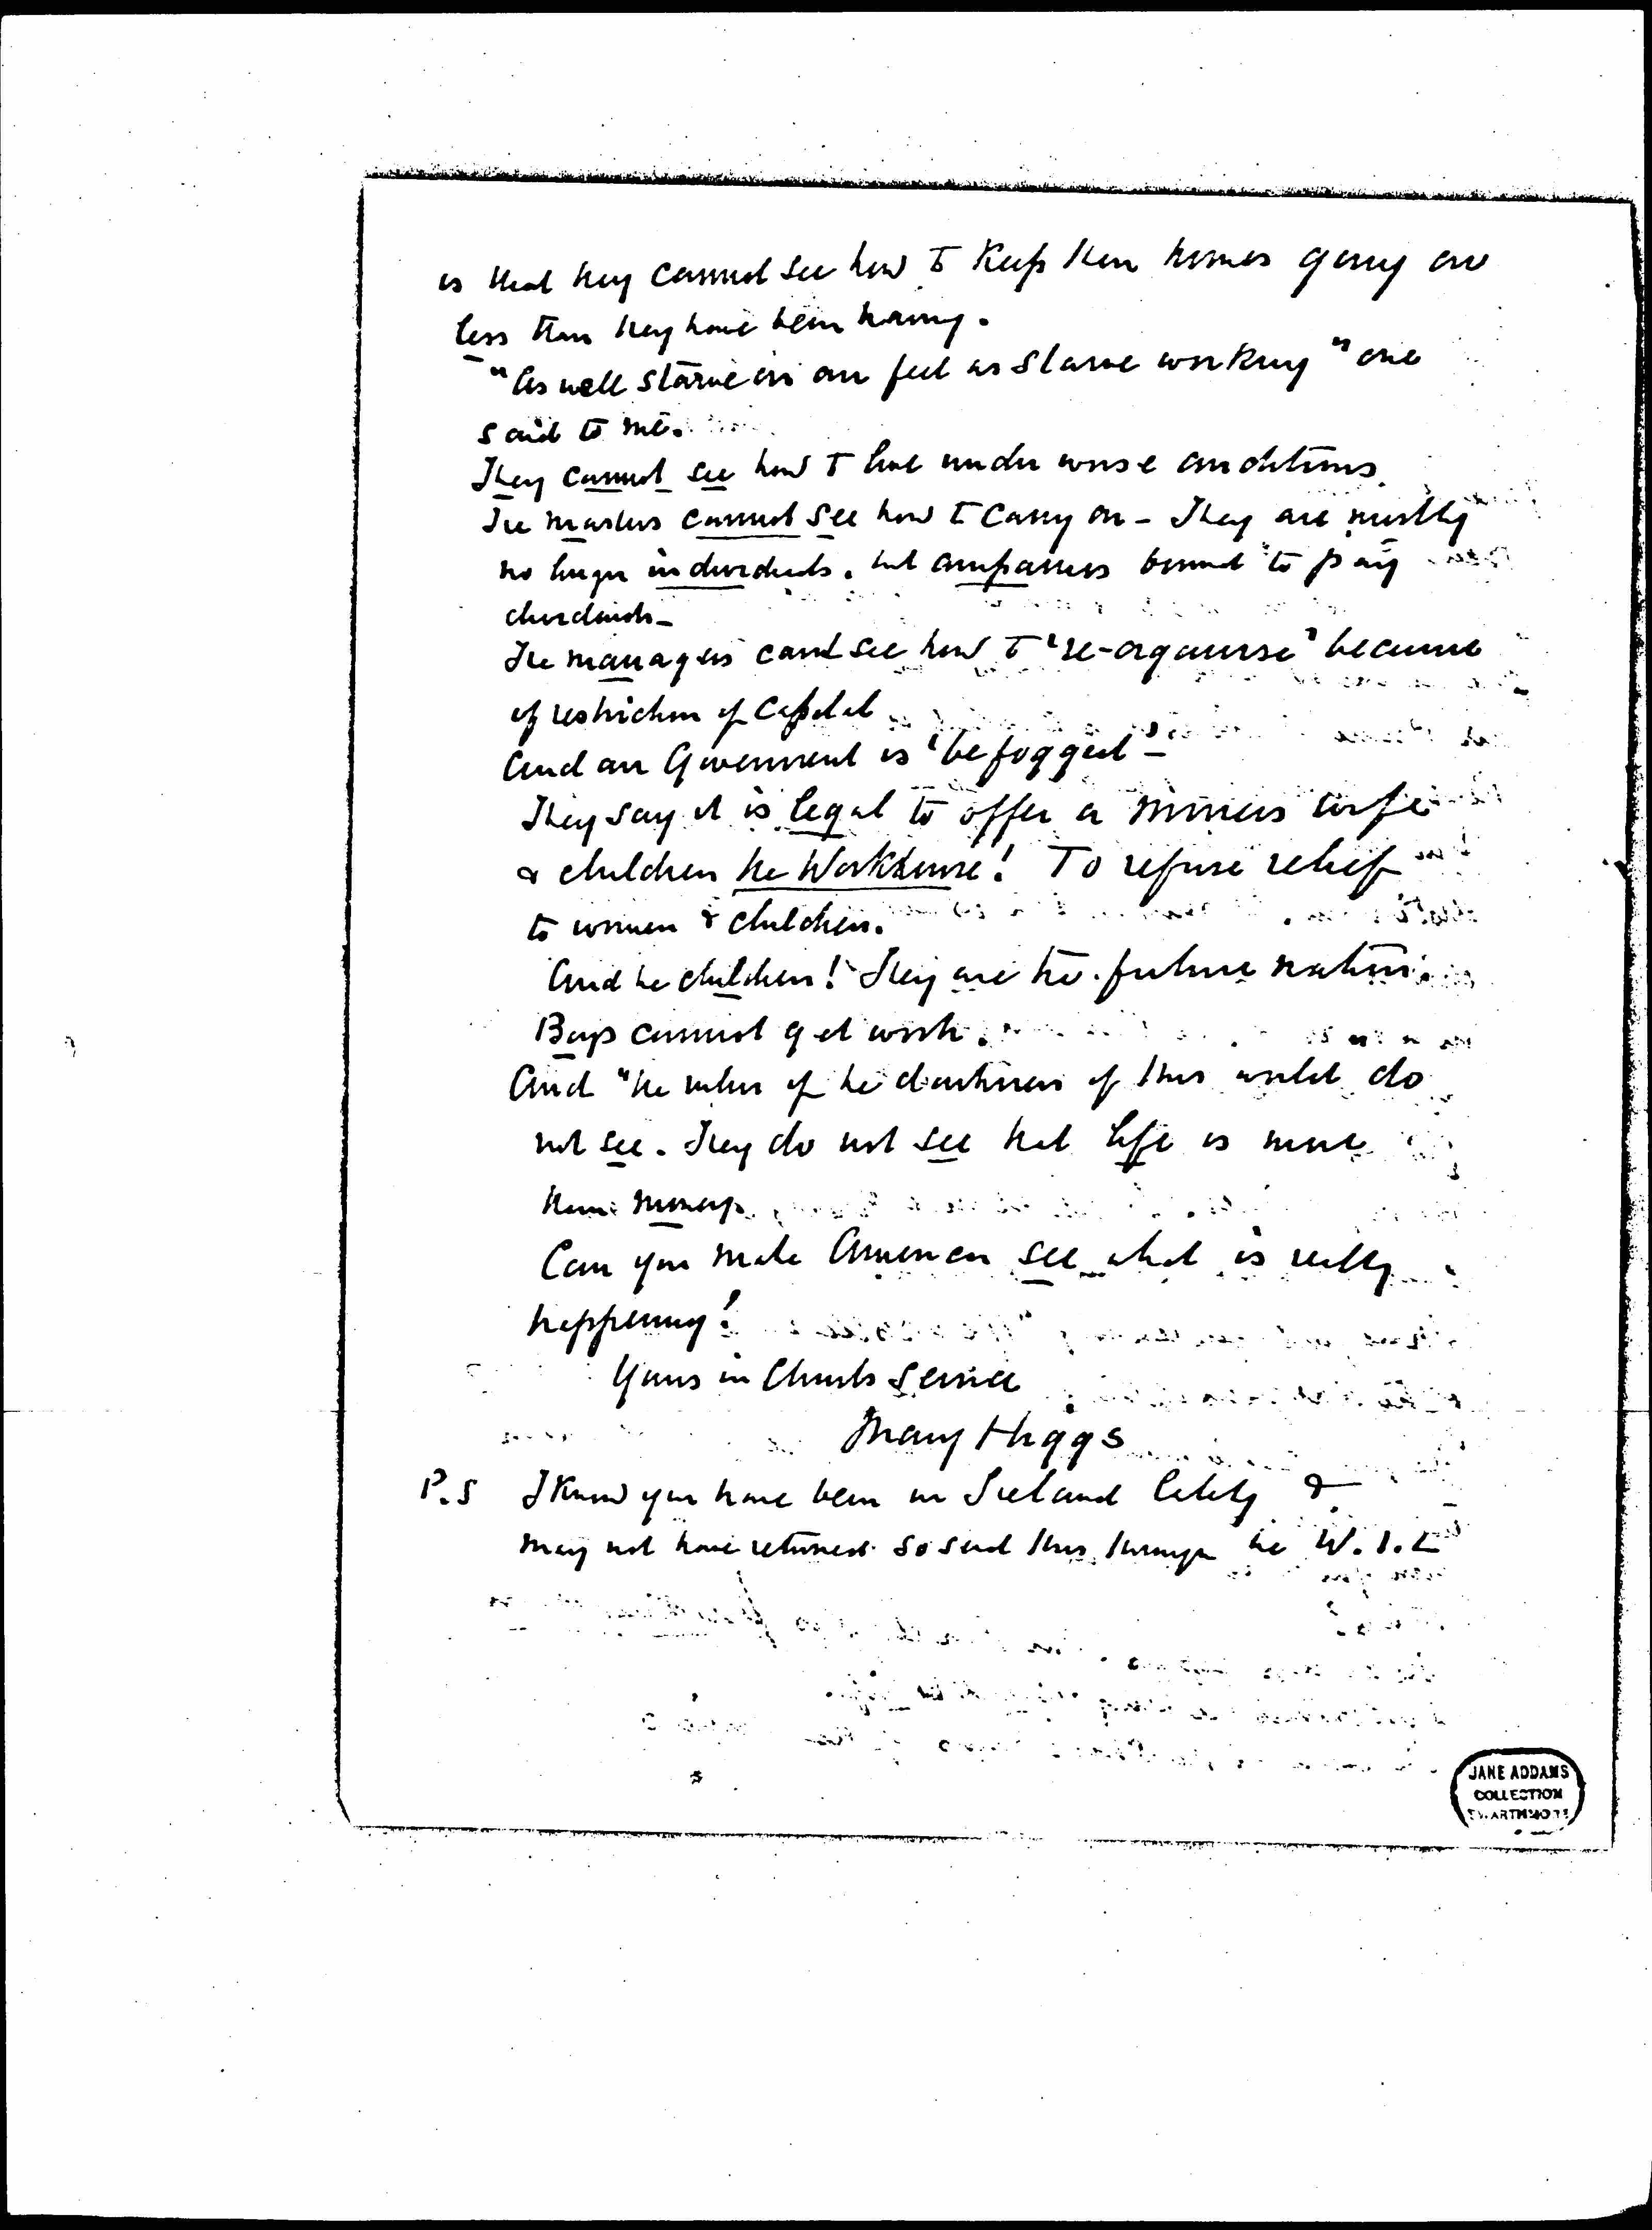 is that they cannot see how to keep their homes going on
less than they have been having.
"As well starve on our feet as starve working" one
said to me.
They cannot see how to live under worse conditions.
The masters cannot see how to carry on - They are mostly
no longer individuals. but companies bound to pay
dividends -
The managers cant see how to 're-organise' because
of restriction of Capital
And our Government is 'befogged' -
They say it is legal to offer a miners wife
& children the Workhouse! To refuse relief
to women & children.
And the children! They are the future nation.
Boys cannot get work.
And "the rulers of the darkness of this world do
not see. They do not see that life is more
than money.
Can you make America see what is really
happening?
Yours in Christs Service
Mary Higgs
P.S I know you have been in Ireland lately &
may not have returned so send this through the W.I.L
JANE ADDAMS
COLLECTION
SWARTHMORE